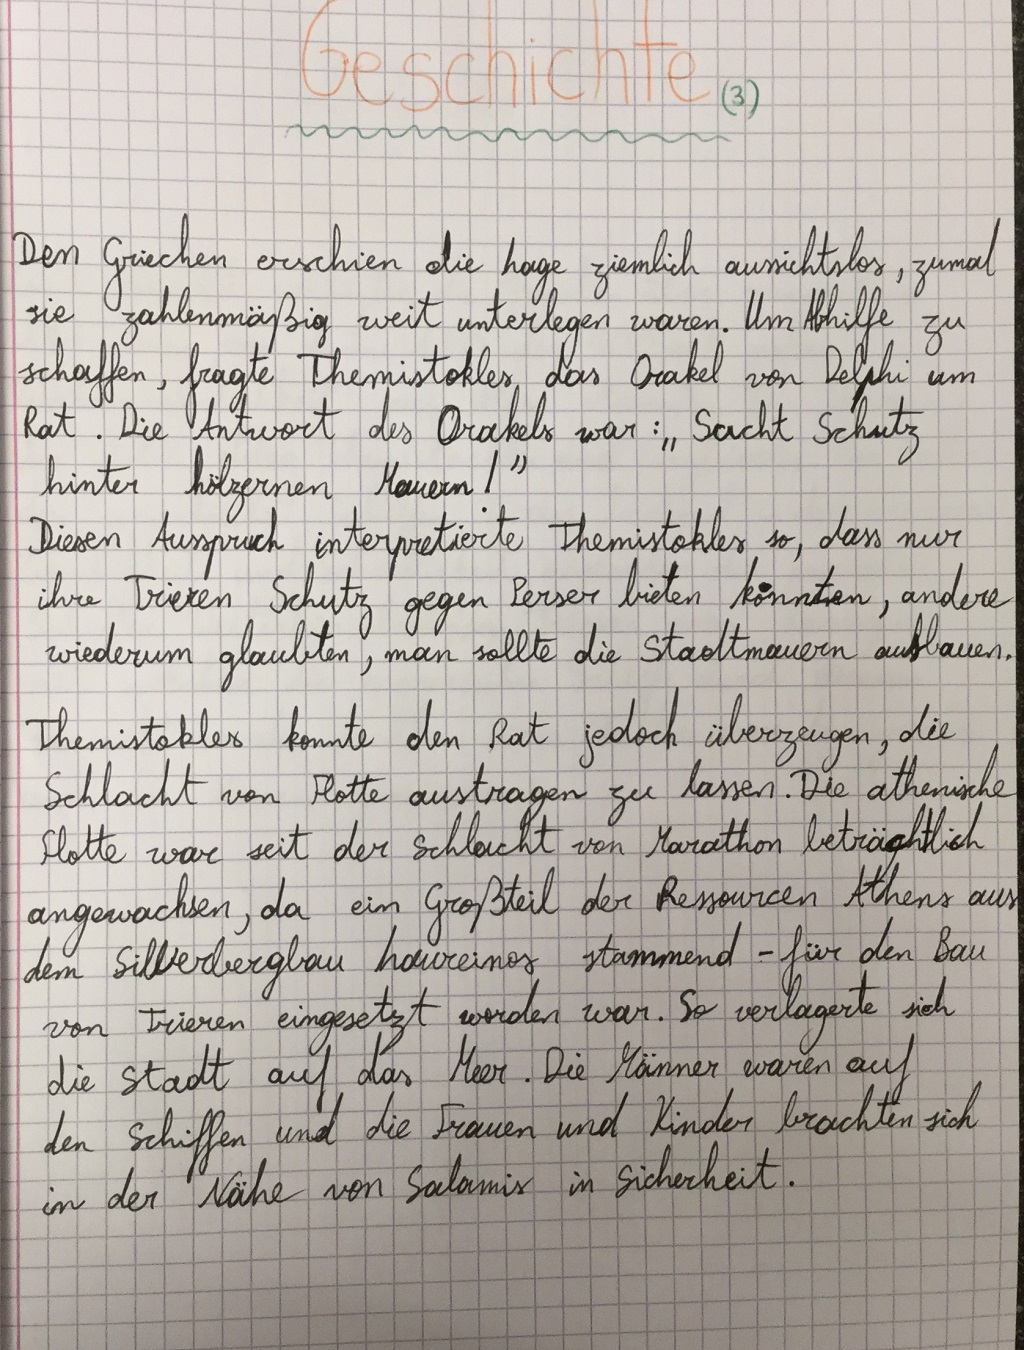 Geschichte (3)
Den Griechen erschien die Lage ziemlich aussichtslos, zumal
sie zahlenmäßig weit unterlegen waren. Um Abhilfe zu
schaffen, fragte Themistokles das Orakel von Delphi um
Rat. Die Antwort des Orakels war: „Sucht Schutz
hinter hölzernen Mauern!”
Diesen Ausspruch interpretierte Themistokles so, dass nur
ihre Trieren Schutz gegen Perser bieten könnten, andere
wiederum glaubten, man sollte die Stadtmauern ausbauen.
Themistokles konnte den Rat jedoch überzeugen, die
Schlacht von Flotte austragen zu lassen. Die athenische
Flotte war seit der Schlacht von Marathon beträchtlich
angewachsen, da ein Großteil der Ressourcen Athens aus
dem Silberbergbau Laureinos stammend - für den Bau
von Trieren eingesetzt worden war. So verlagerte sich
die Stadt auf das Meer. Die Männer waren auf
den Schiffen und die Frauen und Kinder brachten sich
in der Nähe von Salamis in Sicherheit.